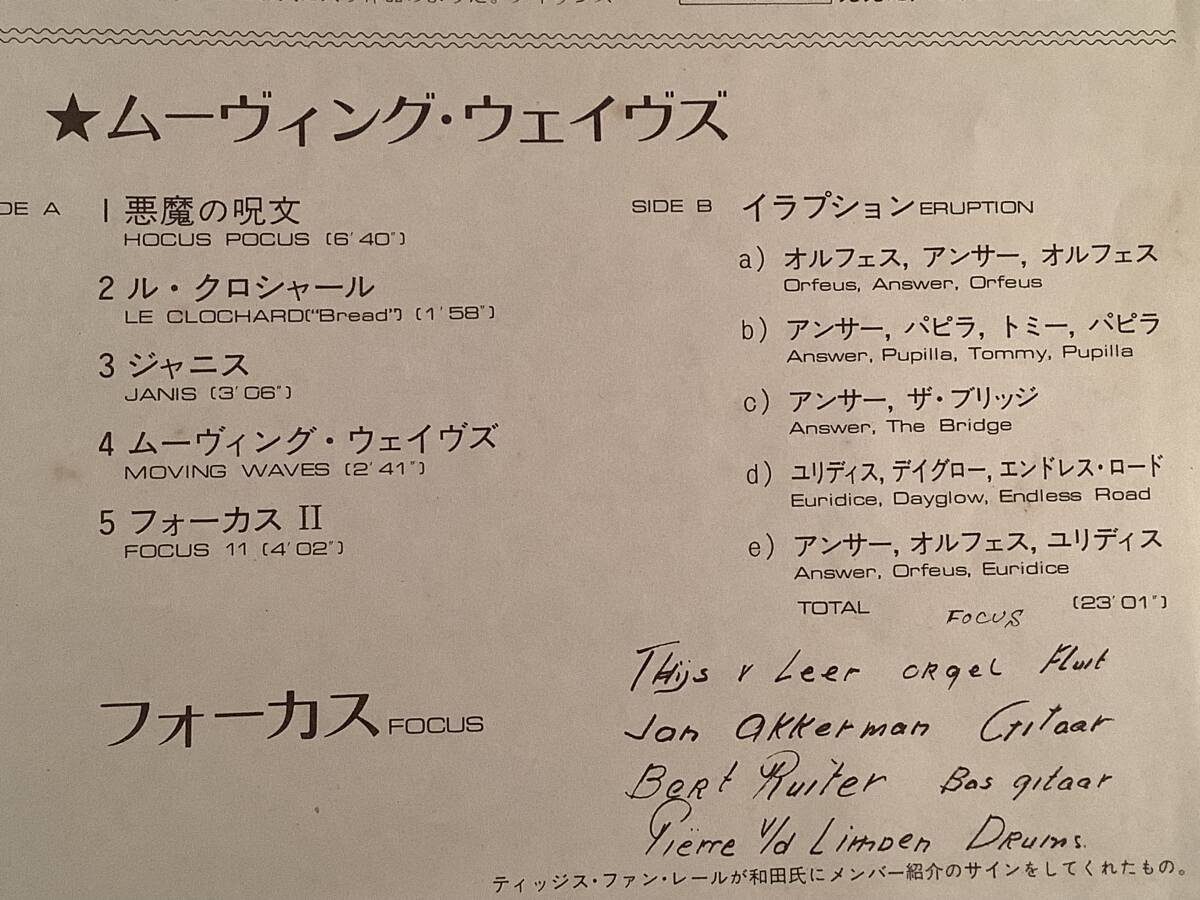 ★ムーヴィング・ウェイヴズ
DE A
1 悪魔の呪文
HOCUS POCUS (6′40″)
2 ル・クロシャール
LE CLOCHARD("Bread") (1′58″)
3 ジャニス
JANIS (3′06″)
4 ムーヴィング・ウェイヴズ
MOVING WAVES (2′41″)
5 フォーカス II
FOCUS 11 (4′02″)
フォーカス FOCUS
SIDE B イラプション ERUPTION
a) オルフェス, アンサー, オルフェス
Orfeus, Answer, Orfeus
b) アンサー, パピラ, トミー, パピラ
Answer, Pupilla, Tommy, Pupilla
c) アンサー, ザ・ブリッジ
Answer, The Bridge
d) ユリディス, デイグロー, エンドレス・ロード
Euridice, Dayglow, Endless Road
e) アンサー, オルフェス, ユリディス
Answer, Orfeus, Euridice
TOTAL (23′01″)
FOCUS
THijs v Leer orgel Fluit
Jan Akkerman Gitaar
Bert Ruiter Bas gitaar
Piërre v/d Linden Drums.
ティッジス・ファン・レールが和田氏にメンバー紹介のサインをしてくれたもの。